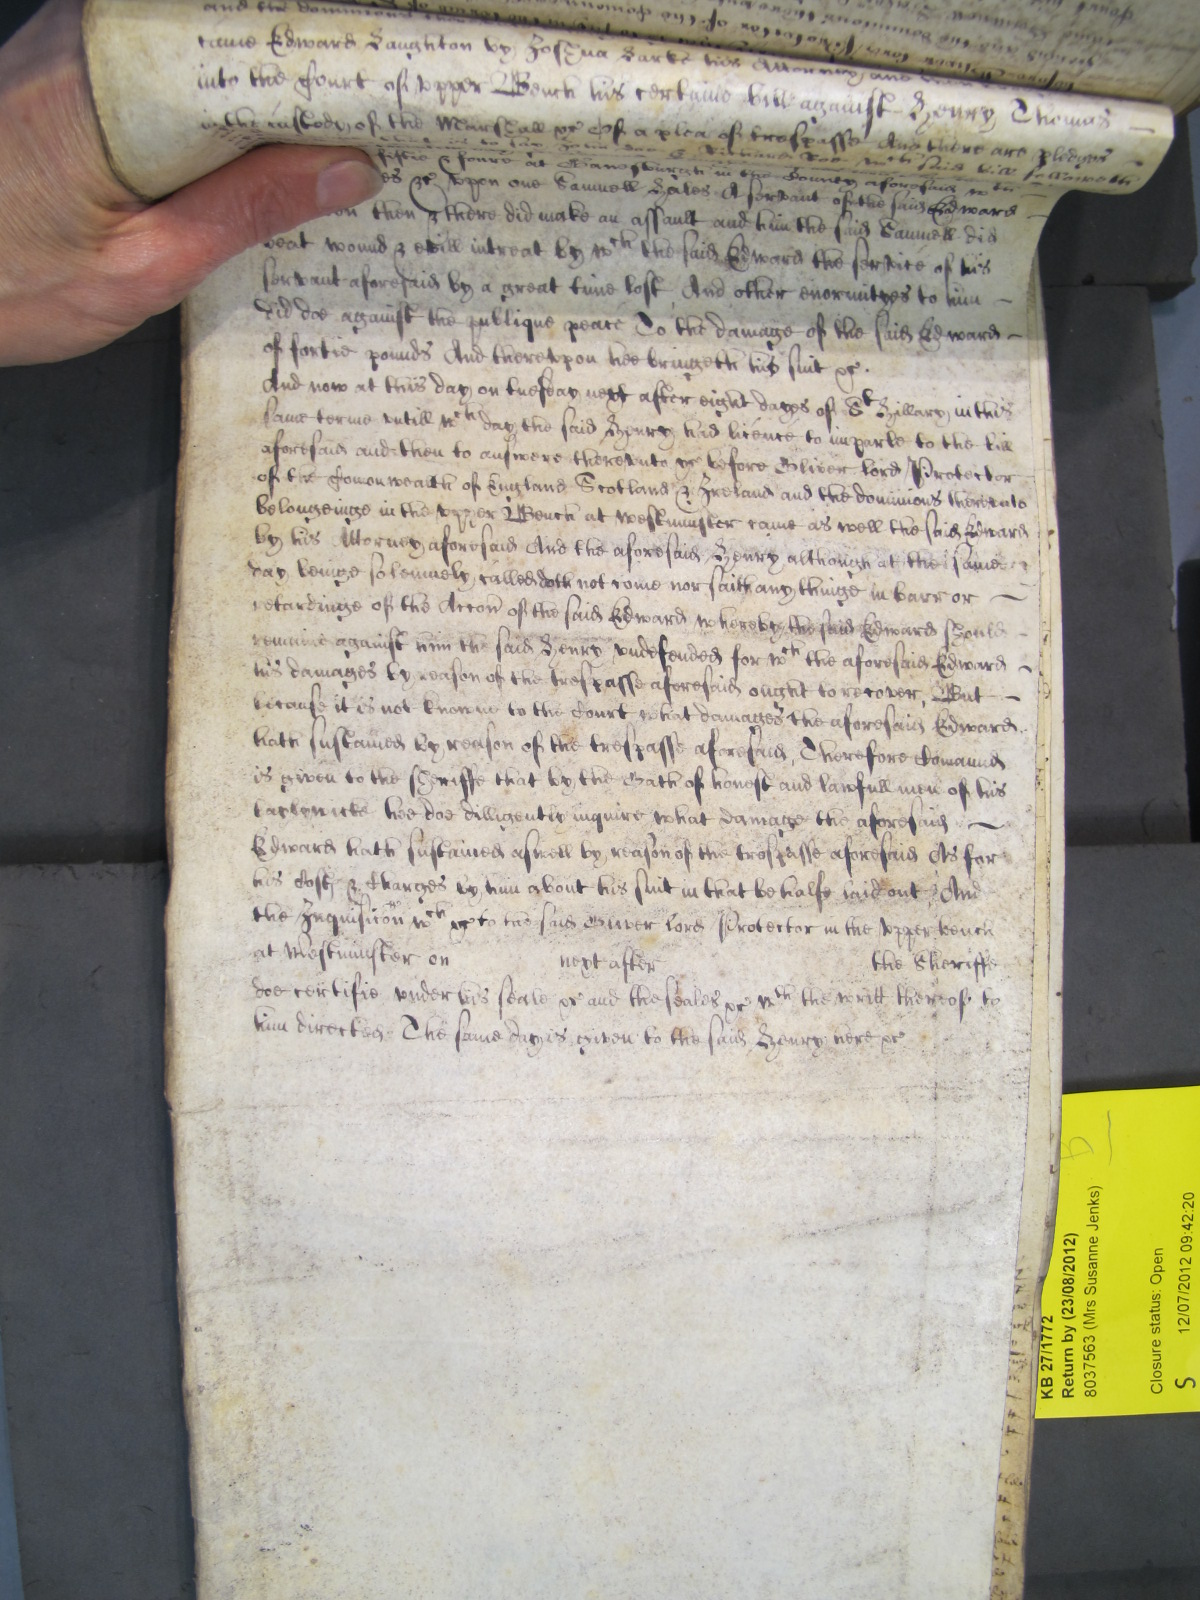 and the dominions
came Edward Haughton by Joshua his Attorney and
into the Court of Upper Bench his certaine bill against Henry Thomas
in the custody of the Marshall &c Of a plea of trespasse And there are pledges
is to say John Doe & Richard Roe wch said bill followeth
fiftie & foure at in the County aforesaid wth
&c vpon one Samuell Bates A servant of the said Edward
then & there did make an assault and him the said Samuell did
beat wound & evill intreat by wch the said Edward the service of his
servant aforesaid by a great time lost And other enormityes to him
did doe against the publique peace To the damage of the said Edward
of fortie pounds And therevpon hee bringeth his suit &c.
And now at this day on tuesday next after eight dayes of St Hillary in this
same terme vntill wch day the said Henry had licence to imparle to the bill
aforesaid and then to answere therevnto &c before Oliver lord Protector
of the Comonwealth of England Scotland & Ireland and the dominions therevnto
belongeinge in the vpper Bench at Westminster came as well the said Edward
by his Attorney aforesaid And the aforesaid Henry although at the same
day beinge solemnely called doth not come nor saith any thinge in barr or
retardinge of the Accon of the said Edward whereby the said Edward should
remaine against him the said Henry vndefended for wch the aforesaid Edward
his damages by reason of the trespasse aforesaid ought to recover, But
because it is not knowne to the Court what damages the aforesaid Edward
hath sustained by reason of the trespasse aforesaid, Therefore Comaund
is given to the Sheriffe that by the Oath of honest and lawfull men of his
baylywicke hee doe dilligently inquire what damage the aforesaid
Edward hath sustained aswell by reason of the trespasse aforesaid As for
his Costs & Charges by him about his suit in that behalfe laid out And
the Inquisicon wch &c to the said Oliver lord Protector in the vpper bench
at Westminster on next after the Sheriffe
doe certifie vnder his seale &c and the seales &c wth the writt thereof to
him directed The same day is given to the said Henry here &c
KB 27/1772
Return by (23/08/2012)
8037563 (Mrs Susanne Jenks)
Closure status: Open
S 12/07/2012 09:42:20